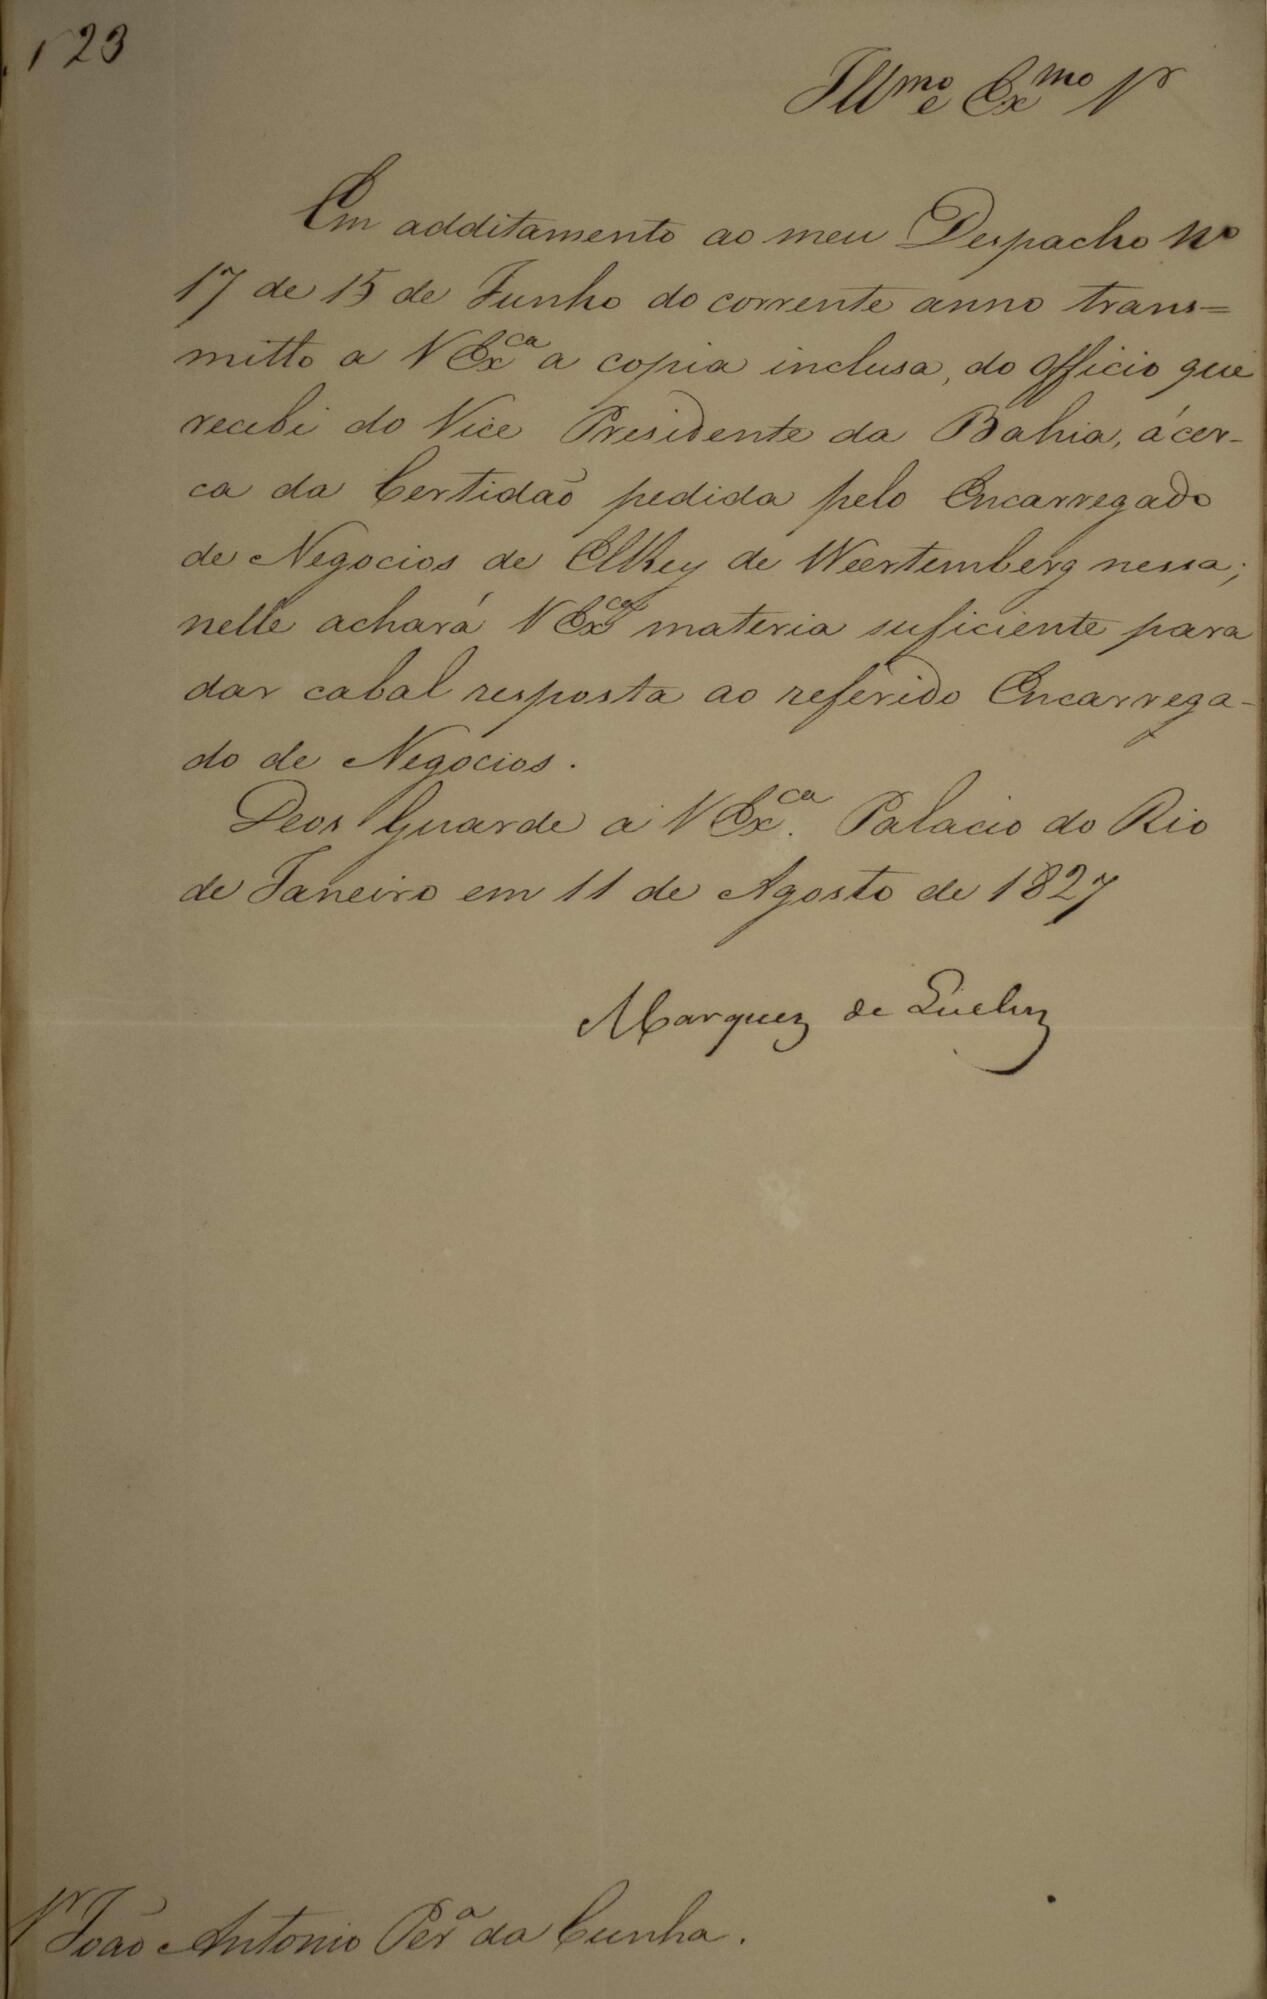 123
Illmo e Exmo Sr
Em additamento ao meu Despacho No
17 de 15 de Junho do corrente anno trans=
mitto a V Exca a copia inclusa, do officio que
recebi do Vice Presidente da Bahia, ácer-
ca da Certidão pedida pelo Encarregado
de Negocios de ElRey de Weertemberg nessa;
nelle achará V Exca materia suficiente para
dar cabal resposta ao referido Encarrega-
do de Negocios.
Deos Guarde a V Exca. Palacio do Rio
de Janeiro em 11 de Agosto de 1827
Marquez de Queluz
Sr João Antonio Pera da Cunha.